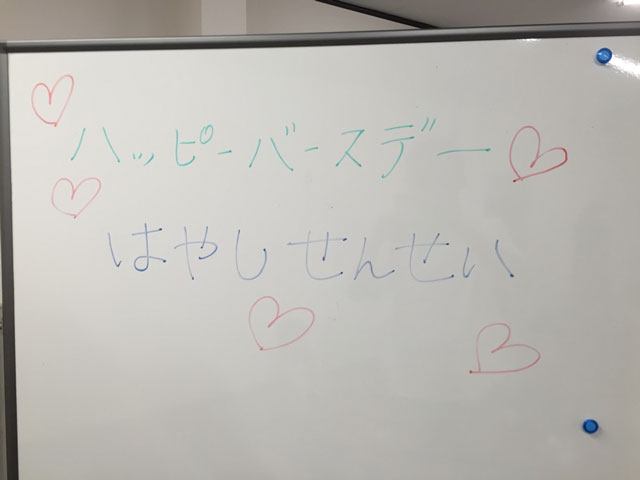 ハッピーバースデー
はやしせんせい